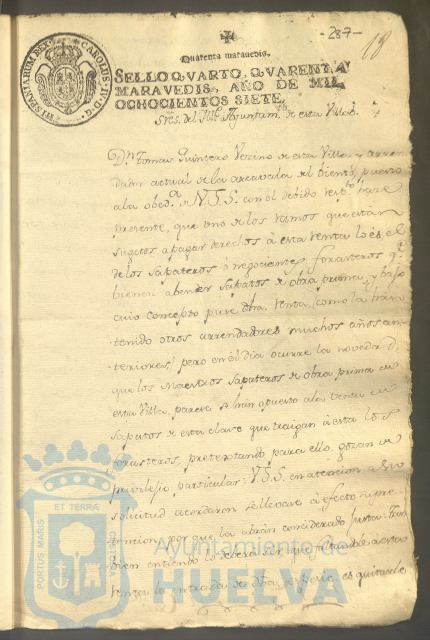 -287-
18
Quarenta maravedis.
SELLO QVARTO, QVARENTA
MARAVEDIS, AÑO DE MIL
OCHOCIENTOS SIETE.
CAROLUS IV D G HISPANIARUM REX
Sres. del Ayuntam. de esta Villa
Dn. Tomas Quintero Vezino de esta Villa y arren-
dador actual de la alcavala del biento, puesto
a la obeda. de V.S.S. con el debido respto. hace
presente, que uno de los ramos que estan
sugetos a pagar derechos â esta renta lo es, el
de los sapateros ô negociantes forasteros qe.
bienen a bender sapatos de obra prima, y bajo
cuio concepto puse dha. renta, como la han
tenido otros arrendadores muchos años an-
teriores; pero en el dia ocurre la novedad,
que los Maestros Sapateros de obra prima en
esta Villa, parece se han opuesto a la venta de
sapatos de esta clase que traigan â esta los
forasteros, pretextando para ello, gozan de
privilejio particular: V.S.S. en atencion a su
solicitud acordaron se llevase â efecto su pre-
tencion, por que la abrán considerado justa: tam-
bien entiendo lo debera ser que faltandole a esta
renta la entrada de dha. especie, es quitarle
PORTUS MARIS ET TERRÆ
Ayuntamiento de
HUELVA